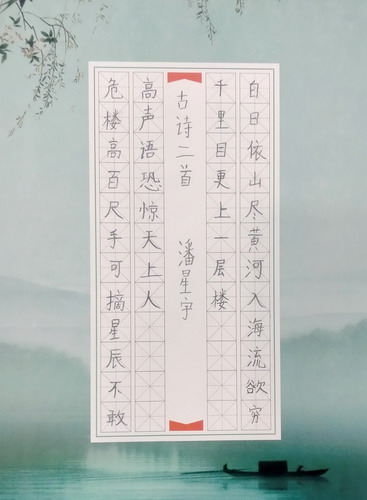 白日依山尽黄河入海流欲穷
千里目更上一层楼
古诗二首 潘星宇
危楼高百尺手可摘星辰不敢
高声语恐惊天上人